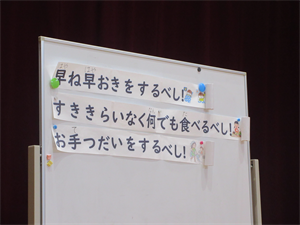 早ね早おきをするべし!
すききらいなく何でも食べるべし!
お手つだいをするべし!